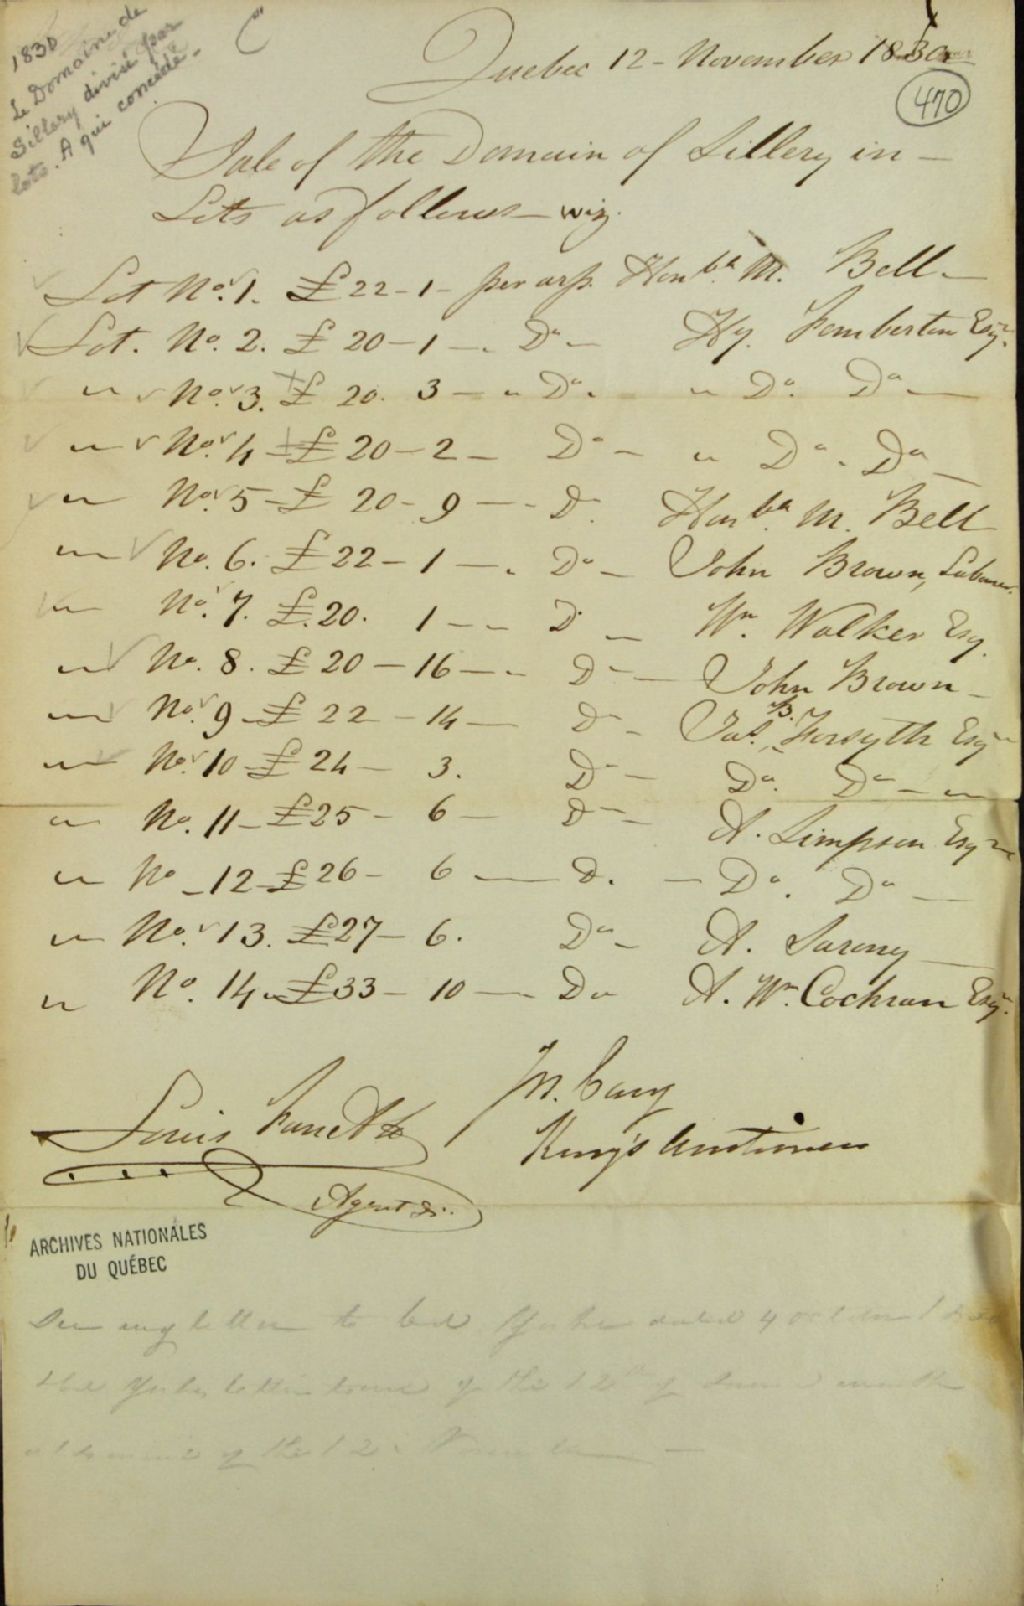 1830
Le Domaine de
Sillery divisé par
lots. A qui concédé.
Quebec 12 - November 1830
470
Sale of the Domain of Sillery in -
Lots as follows - viz.
Lot No. 1. £22 - 1 - per arp. Honble. M. Bell -
Lot. No. 2. £ 20 - 1 - Do - Hy. Pemberton Esqr.
" No. 3. £ 20. 3 - " Do. " Do. Do -
" No. 4 - £20 - 2 - Do - " Do. Do -
" No. 5 - £ 20 - 9 - Do. Honble. M. Bell
" No. 6. £22 - 1 - Do - John Brown, Labourer.
" No. 7. £.20. 1 - D - Wm. Walker Esq.
" No. 8. £20 - 16 - Do - John Brown -
" No. 9 - £ 22 - 14 - Do - Jas. B. Forsyth Esqr
" No. 10 - £24 - 3. Do - Do. Do - "
" No. 11 - £25 - 6 - Do - A. Simpson Esqre
" No - 12 - £26 - 6 - D. - Do. Do -
" No. 13. £27 - 6. Do - A. Sarony -
" No. 14 - £33 - 10 - Do A. Wm. Cochran Esqr.
Louis Panet
Agent &c.
Jn. Cary
King's Auctioneer
ARCHIVES NATIONALES
DU QUÉBEC
See my letter to Col. Yorke dated 4 October
Col Yorke letter to me of the 12th of same month
of the 12. November -